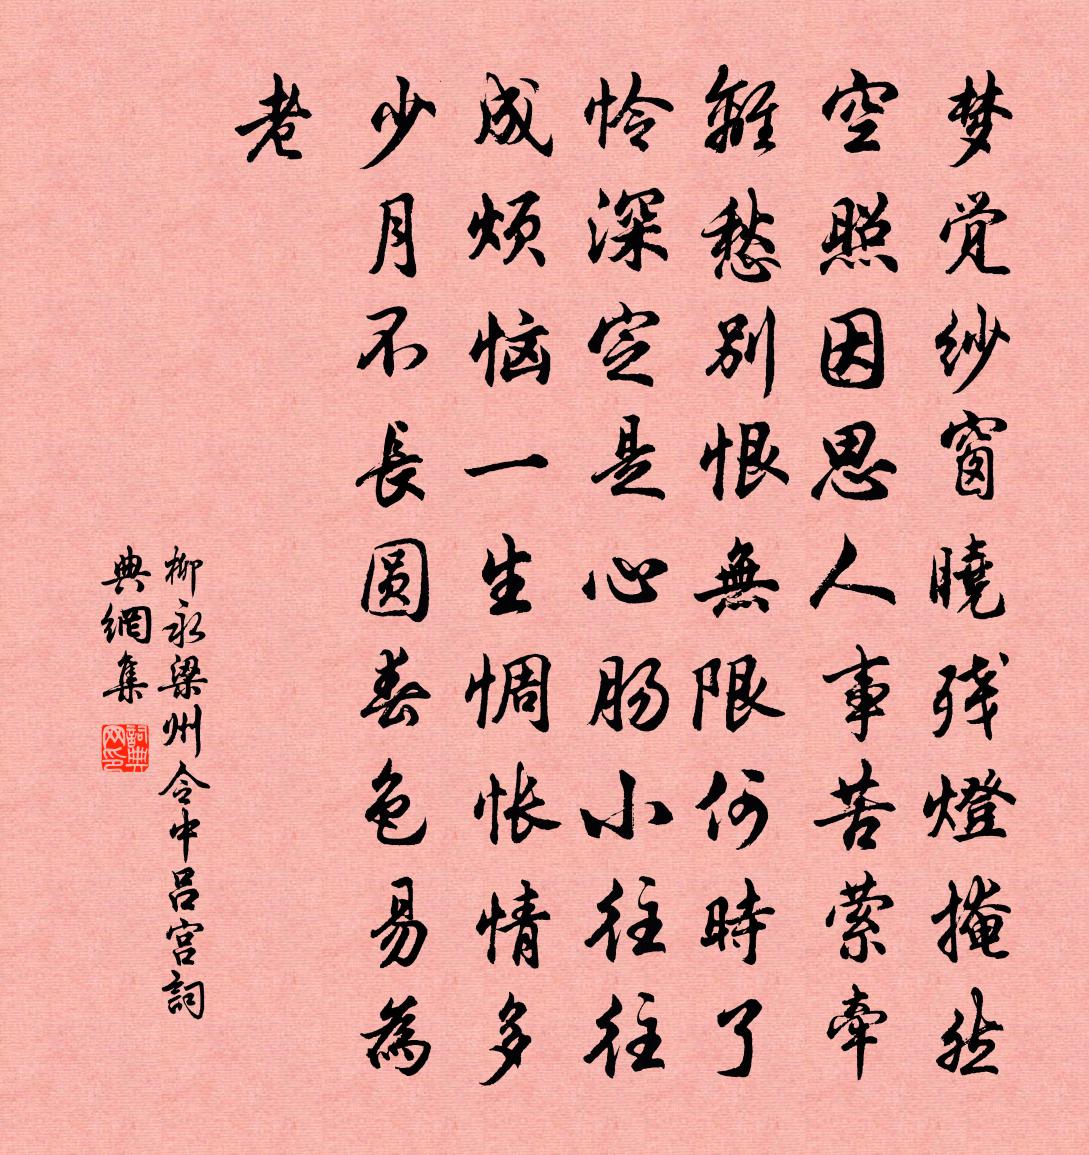 梦觉纱窗曉残燈掩然
空照因思人事苦萦牵
離愁别恨無限何時了
怜深定是心肠小往往
成烦恼一生惆怅情多
少月不長圆春色易為
老
柳永梁州令中吕宫詞
典網集
詞典网印